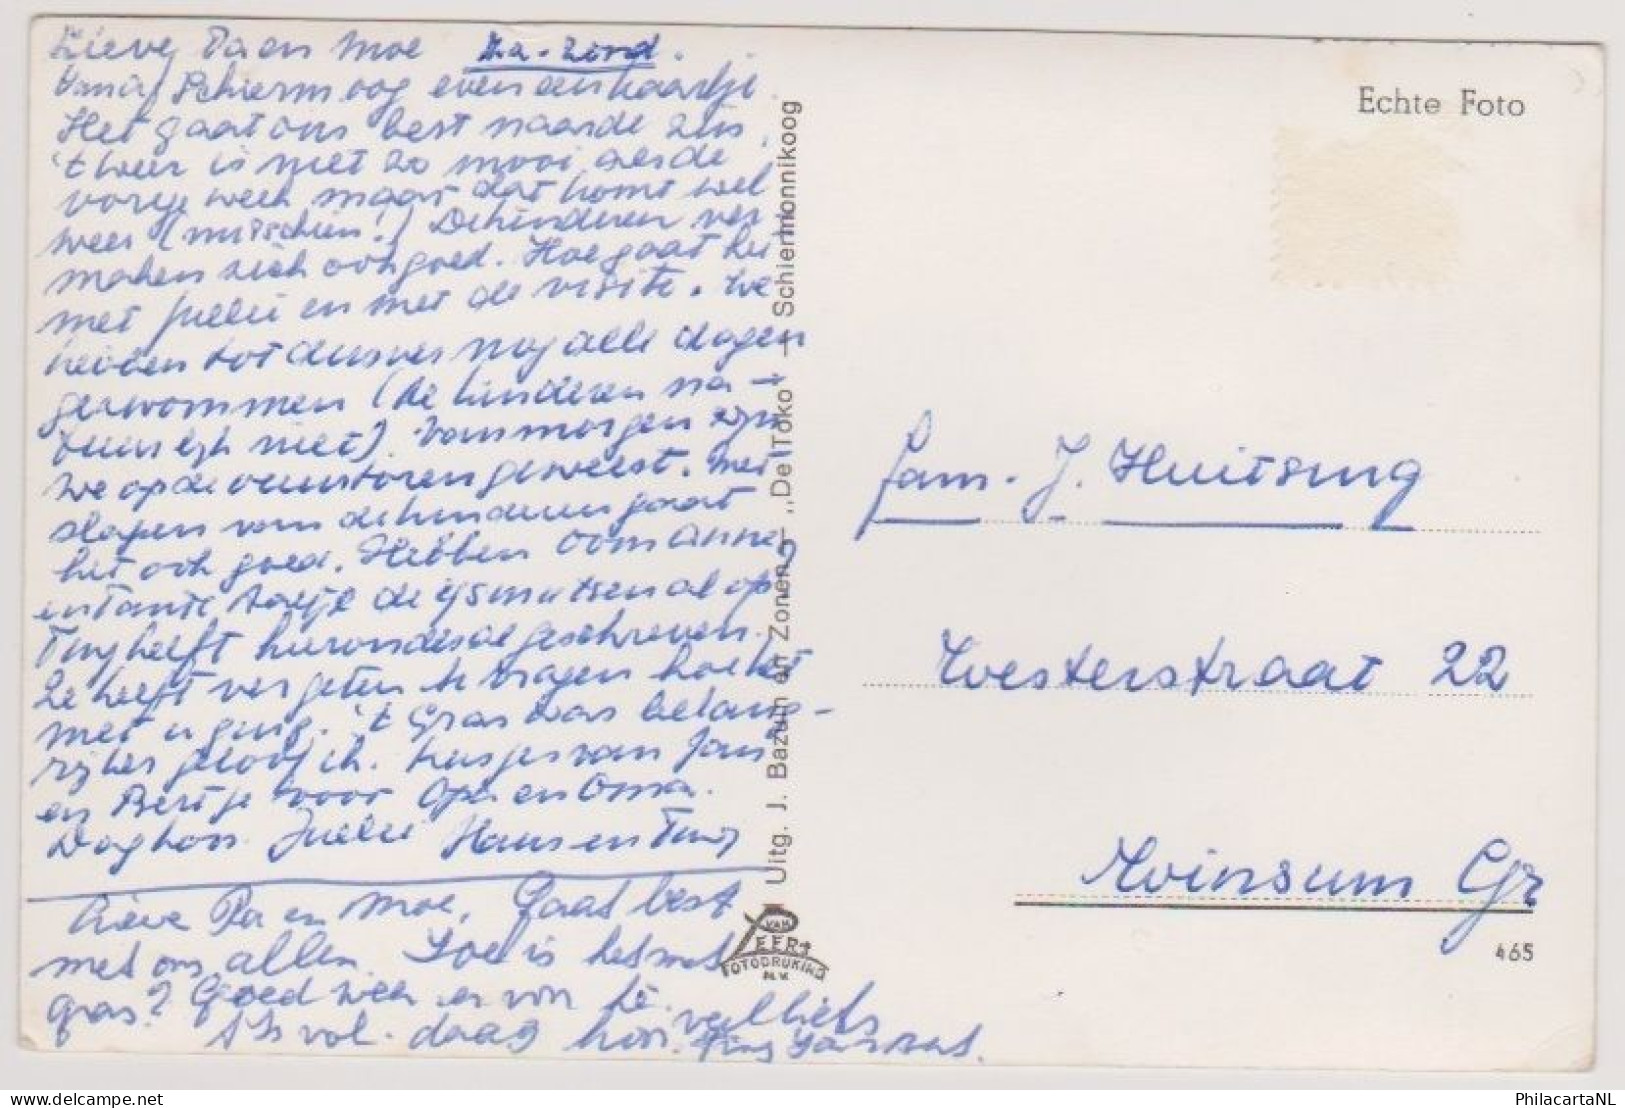 Lieve Pa en Moe Za-Zond.
Vanaf Schierm.oog even een kaartje.
Het gaat ons best naarde zin.
't weer is niet zo mooi als de
vorige week maar dat komt wel
weer (misschien!) De kinderen ver-
maken zich ook goed. Hoe gaat het
met jullie en met de visite. We
hebben tot dusver nog alle dagen
gezwommen (de kinderen na-
tuurlijk niet). Vanmorgen zijn
we op de vuurtoren geweest. Met
slapen van de kinderen gaat
het ook goed. Hebben oom Anne
en Tante de ijsmutsen al op
Tiny heeft hieronder al geschreven.
Ze heeft vergeten te vragen hoe het
met u ging. 't Gras was belang-
rijker geloof ik. Kusjes van Jan
en Bertje voor Opa en Oma.
Dag hoor. Jullie Hans en Tiny
Lieve Pa en Moe, Gaat best
met ons allen. Hoe is het met
gras? Goed weer er voor hè.
't Is vol. daag hoor. veel liefs
Tiny
Uitg. J. Bazuin en Zonen „De Toko" — Schiermonnikoog
VAN
LEER'S
FOTODRUKIND
N.V.
Echte Foto
fam. J. Huitsing
Westerstraat 22
Winsum Gr
465
PhilacartaNL